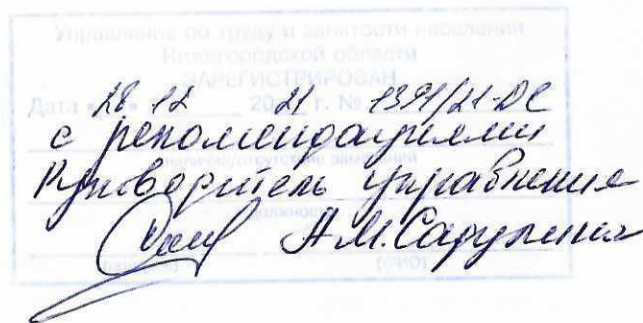 Управление по труду и занятости населения
Нижегородской области
ЗАРЕГИСТРИРОВАН
Дата «28» 12 2021 г. № 1391/21-ДС
с рекомендациями
наличие/отсутствие замечаний
Руководитель управления
должность
А.М.
(ФИО)